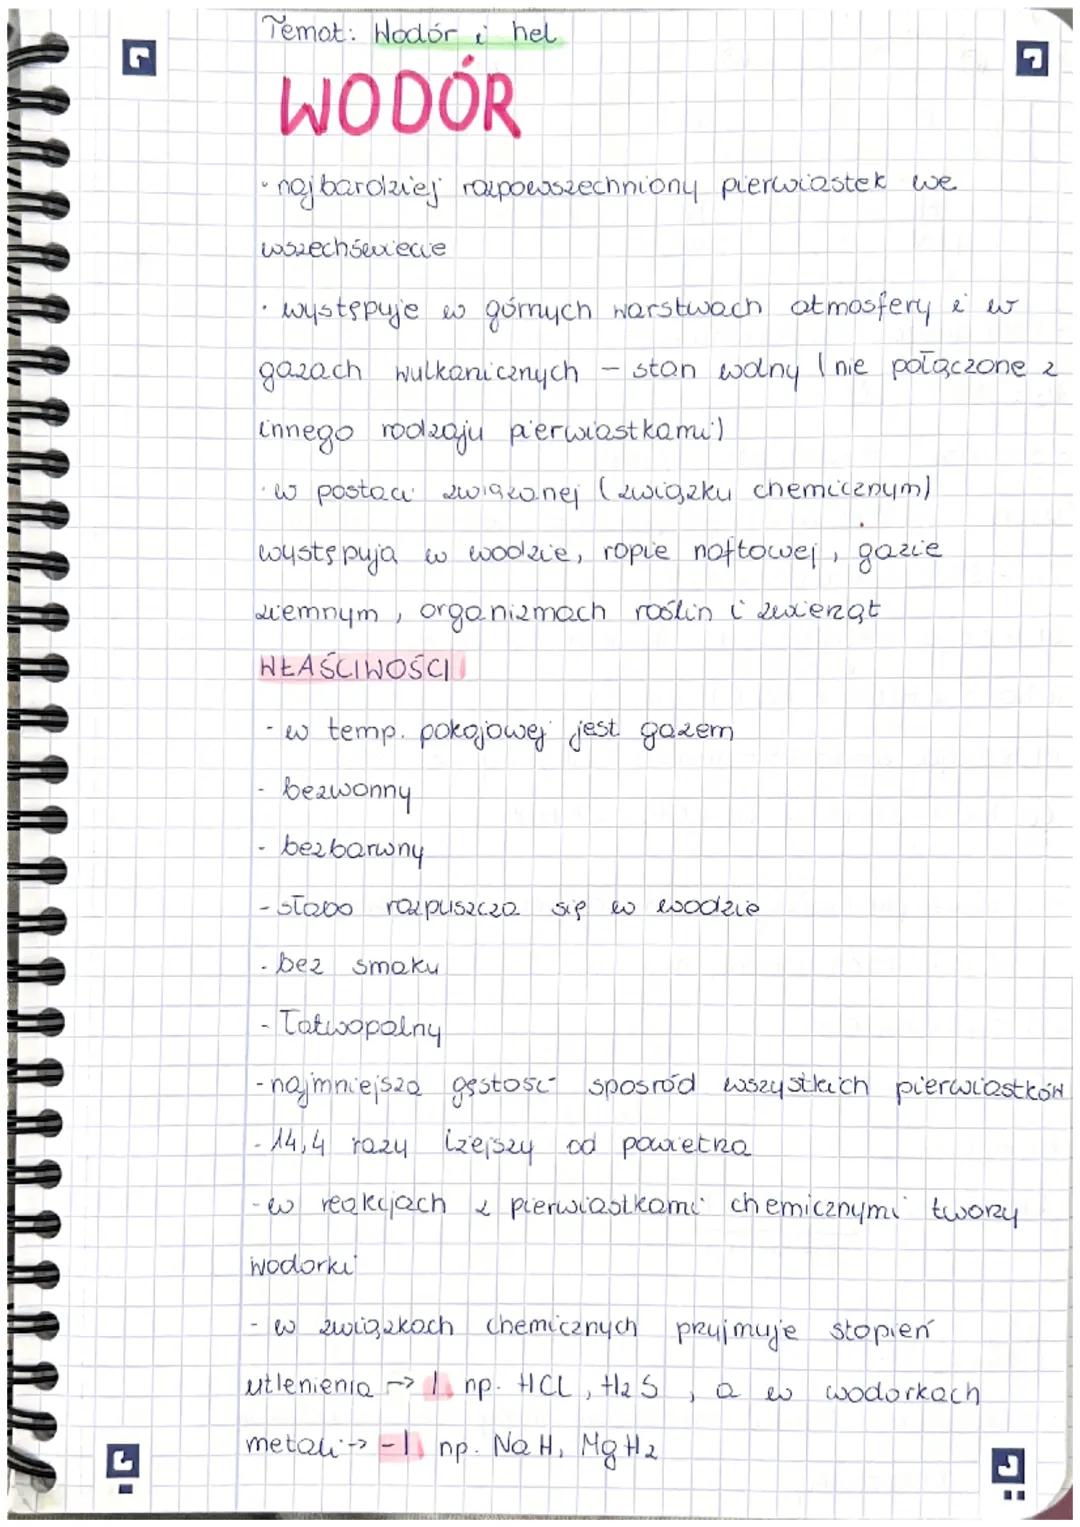 Temat: Wodór i hel
WODÓR
• najbardziej rozpowszechniony pierwiastek we
wszechświecie
• występuje w górnych warstwach atmosfery i w
gazach wulkanicznych - stan wolny (nie połączone z
innego rodzaju pierwiastkami)
• w postaci związanej (związku chemicznym)
występują w wodzie, ropie naftowej, gazie
ziemnym, organizmach roślin i zwierząt
WŁAŚCIWOŚCI
- w temp. pokojowej jest gazem
- bezwonny
- bezbarwny
- słabo rozpuszcza się w wodzie
- bez smaku
- łatwopalny
- najmniejsza gęstość spośród wszystkich pierwiastków
- 14,4 razy lżejszy od powietrza
- w reakcjach z pierwiastkami chemicznymi tworzy
wodorki
- w związkach chemicznych przyjmuje stopień
utlenienia -> I np. HCL, H2S, a w wodorkach
metali -> -I np. NaH, MgH2